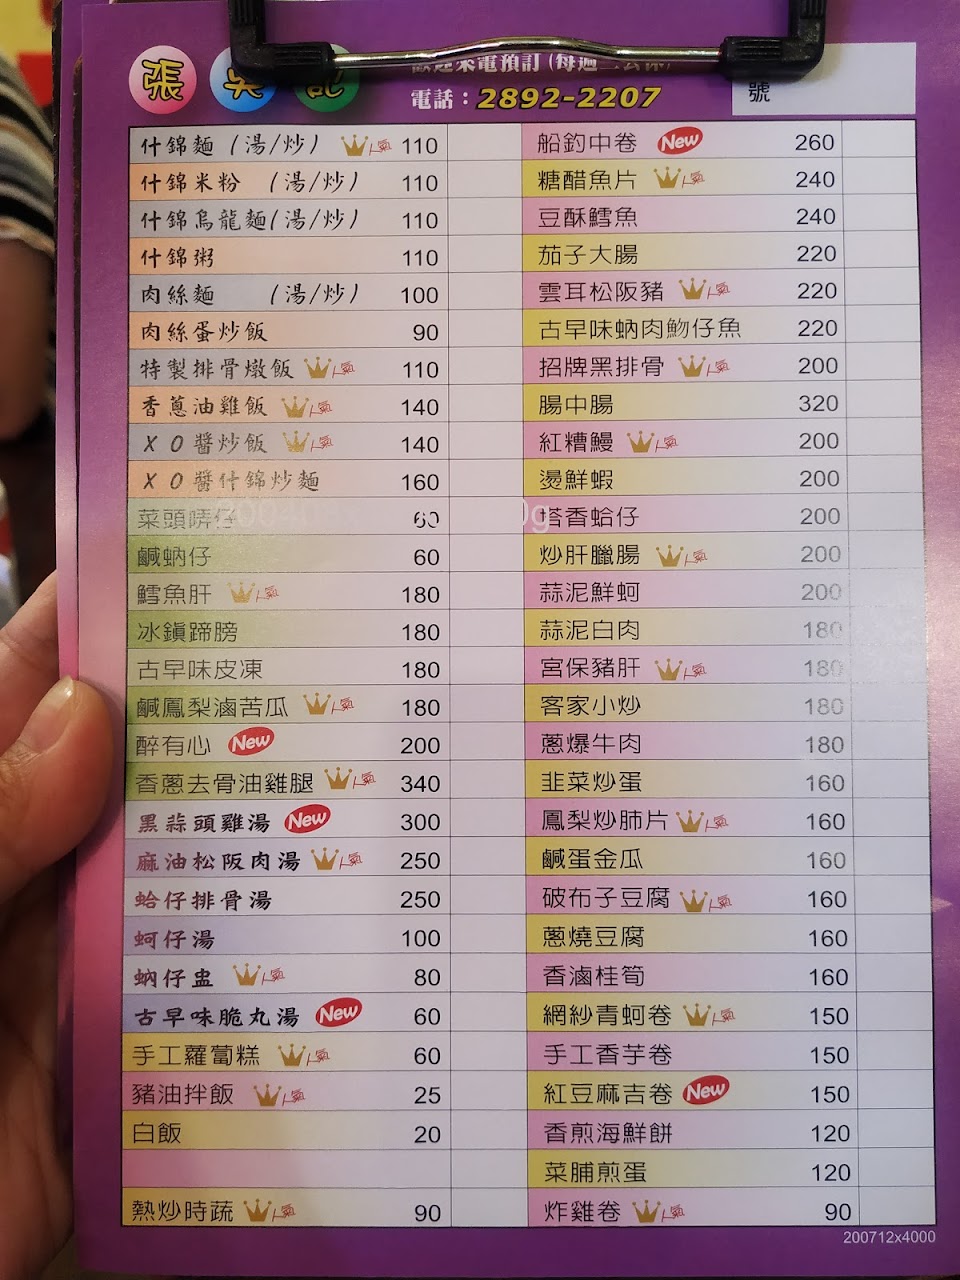 張 吳 記
歡迎來電預訂(每週二公休)
電話：2892-2207
號
什錦麵(湯/炒) 人氣 110
什錦米粉 (湯/炒) 110
什錦烏龍麵(湯/炒) 110
什錦粥 110
肉絲麵 (湯/炒) 100
肉絲蛋炒飯 90
特製排骨燉飯 人氣 110
香蔥油雞飯 人氣 140
XO醬炒飯 人氣 140
XO醬什錦炒麵 160
菜頭嗱仔 60
鹹蚋仔 60
鱈魚肝 人氣 180
冰鎮蹄膀 180
古早味皮凍 180
鹹鳳梨滷苦瓜 人氣 180
醉有心 New 200
香蔥去骨油雞腿 人氣 340
黑蒜頭雞湯 New 300
麻油松阪肉湯 人氣 250
蛤仔排骨湯 250
蚵仔湯 100
蚋仔盅 人氣 80
古早味脆丸湯 New 60
手工蘿蔔糕 人氣 60
豬油拌飯 人氣 25
白飯 20
熱炒時蔬 人氣 90
船釣中卷 New 260
糖醋魚片 人氣 240
豆酥鱈魚 240
茄子大腸 220
雲耳松阪豬 人氣 220
古早味蚋肉魩仔魚 220
招牌黑排骨 人氣 200
腸中腸 320
紅糟鰻 人氣 200
燙鮮蝦 200
塔香蛤仔 200
炒肝臘腸 人氣 200
蒜泥鮮蚵 200
蒜泥白肉 180
宮保豬肝 人氣 180
客家小炒 180
蔥爆牛肉 180
韭菜炒蛋 160
鳳梨炒肺片 人氣 160
鹹蛋金瓜 160
破布子豆腐 人氣 160
蔥燒豆腐 160
香滷桂筍 160
網紗青蚵卷 人氣 150
手工香芋卷 150
紅豆麻吉卷 New 150
香煎海鮮餅 120
菜脯煎蛋 120
炸雞卷 人氣 90
200712x4000